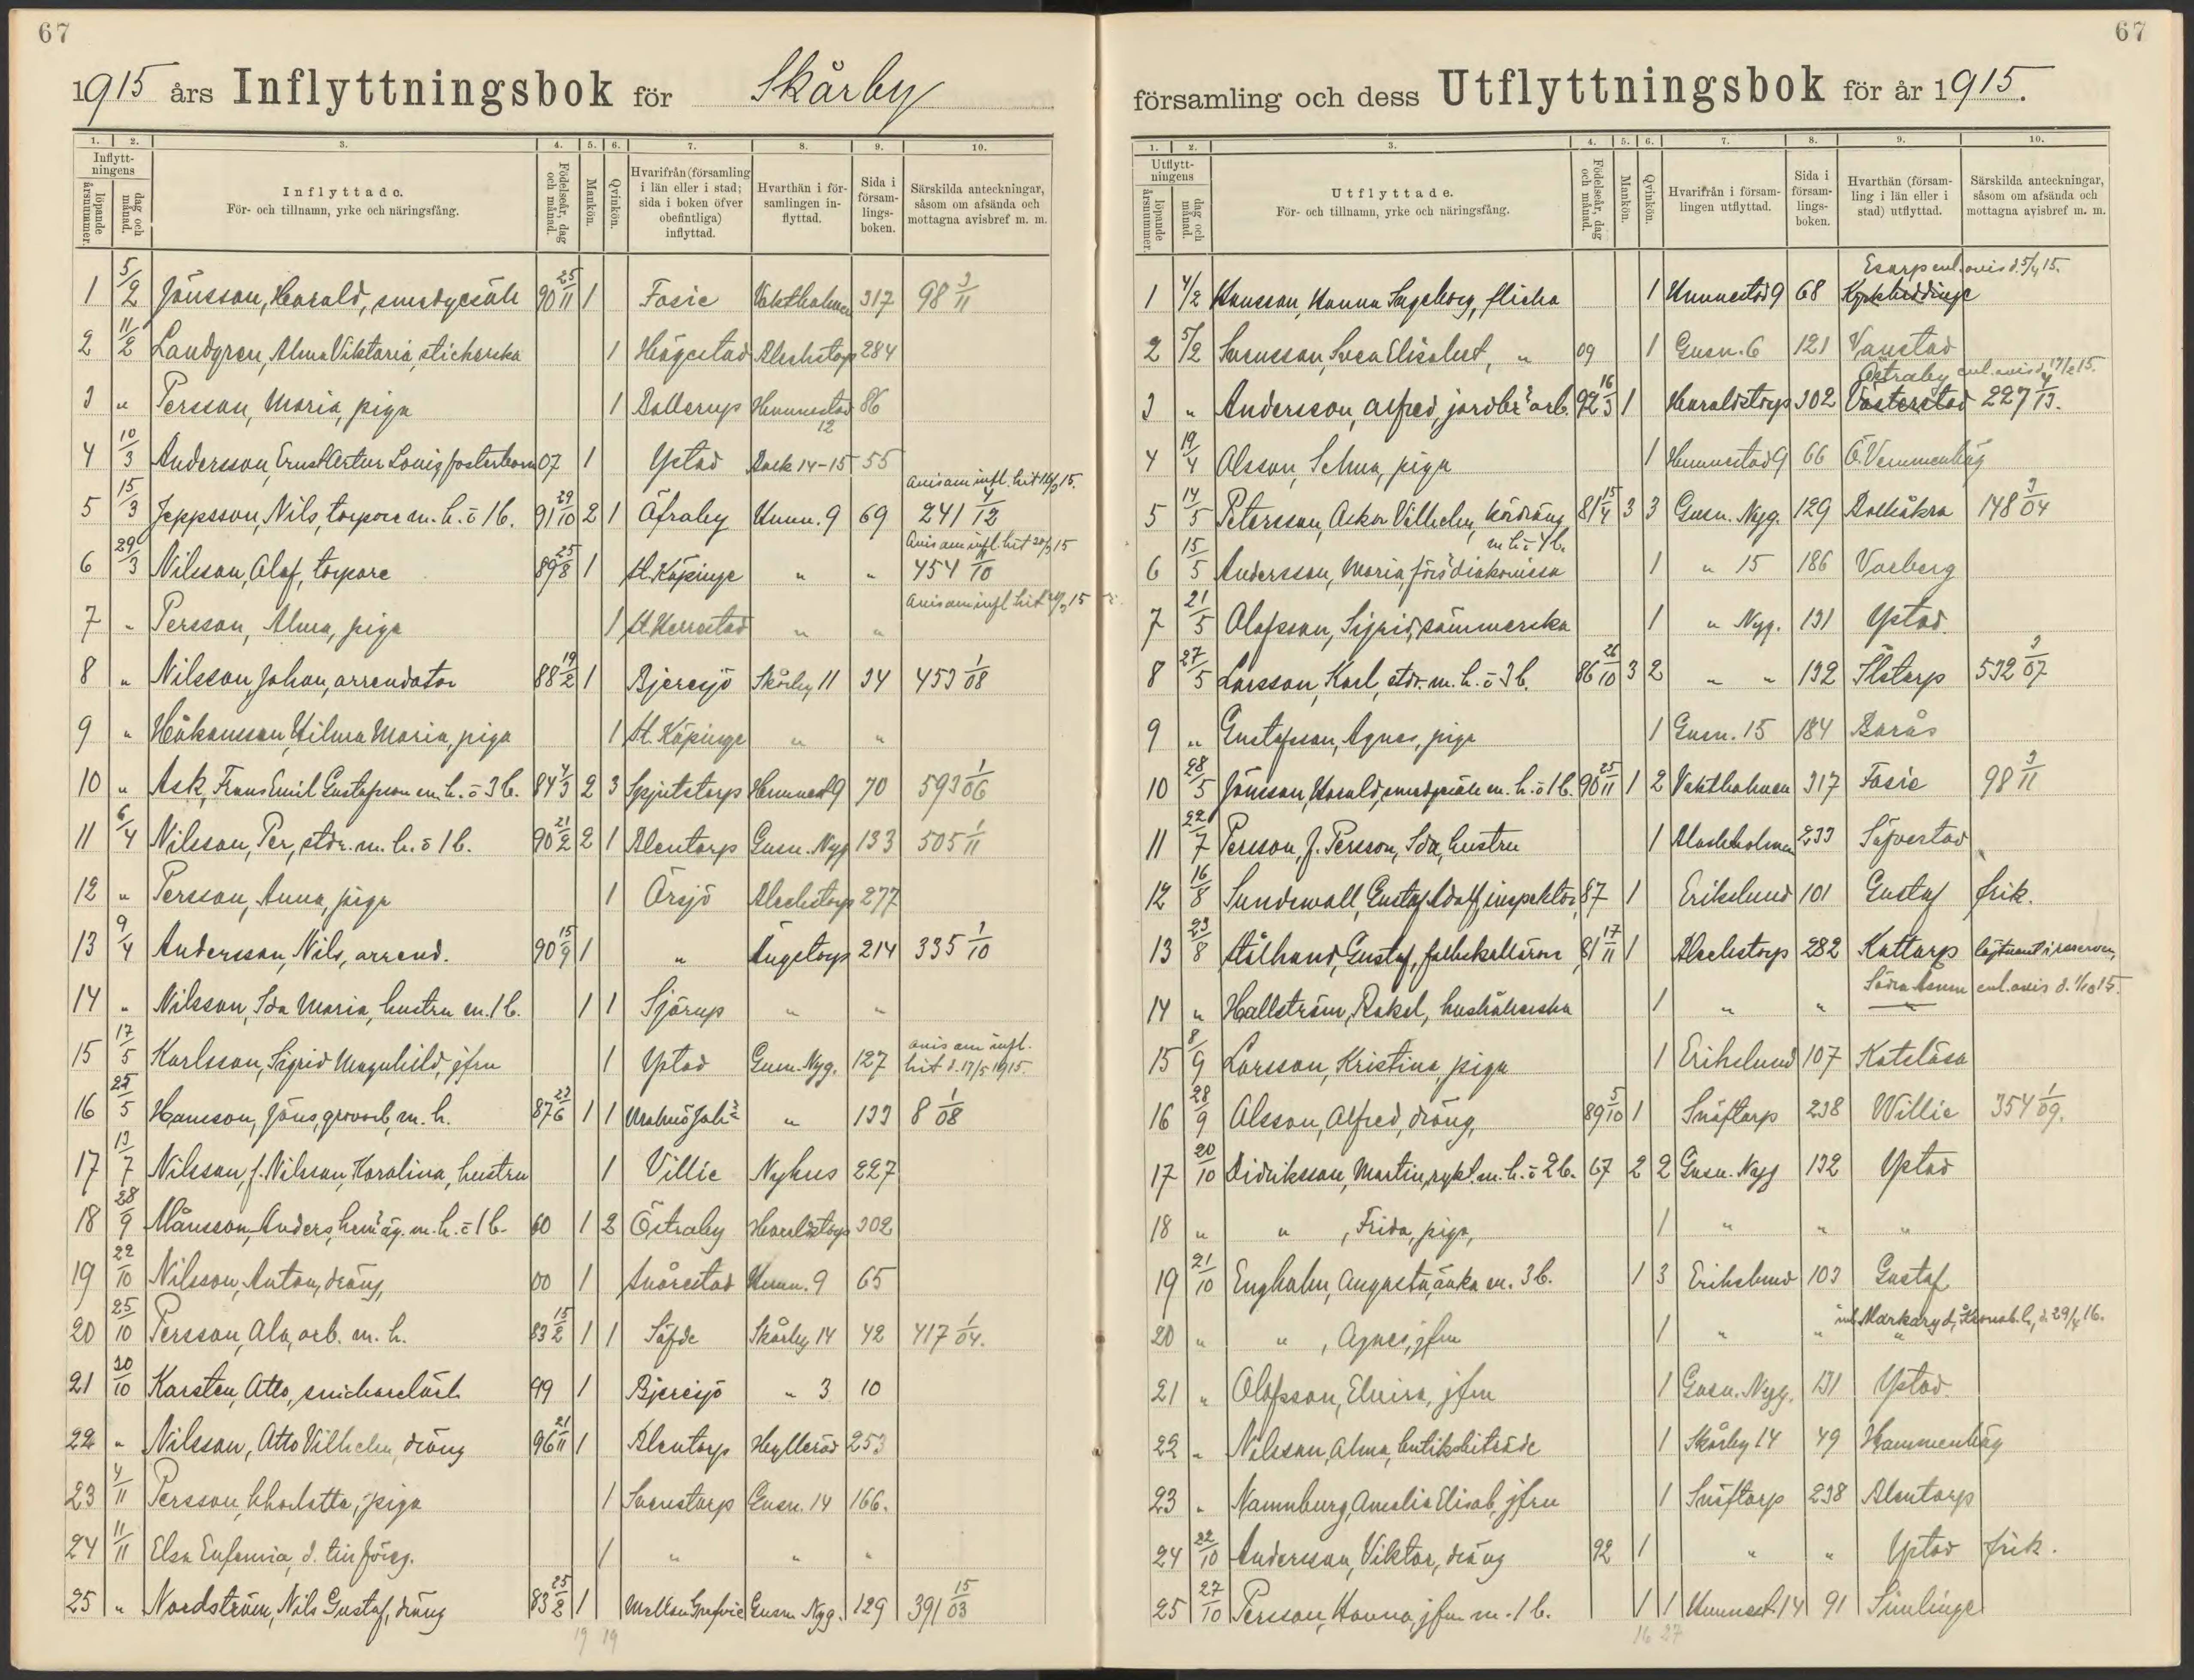 67
1915 års Inflyttningsbok för Skårby
1. 2. 3. 4. 5. 6. 7. 8. 9. 10.
Inflyttningens
löpande årsnummer.
dag och månad.
Inflyttade.
För- och tillnamn, yrke och näringsfång.
Födelseår, dag och månad.
Mankön.
Qvinkön.
Hvarifrån (församling i län eller i stad; sida i boken öfver obefintliga) inflyttad.
Hvarthän i församlingen inflyttad.
Sida i församlingsboken.
Särskilda anteckningar, såsom om afsända och mottagna avisbref m. m.
1 5/2 Jönsson, Harald, smedgesäll 90 25/11 1 Fosie Vaktholmen 317 98 3/11
2 11/2 Landgren, Alma Viktoria, stickerska 1 Högestad Blechstorp 284
3 " Persson, Maria, piga 1 Bollerup Hunnestad 86
4 10/3 Andersson, Ernst Artur Lovis, fosterbarn 07 1 Ystad 12 14-15 55
5 15/3 Jeppsson, Nils, torpare m. h. o 1 b. 91 29/10 2 1 Öfraby Hunn. 9 69 avis om infl. hit 16/3 15. 241 4/12
6 29/3 Nilsson, Olof, torpare 89 25/8 1 St. Köpinge " " avis om infl. hit 20/3 15 454 11/10
7 " Persson, Alma, piga 1 St. Herrestad " " avis om infl. hit 20/3 15
8 " Nilsson, Johan, arrendator 88 19/2 1 Bjeresjö Skårby 11 34 453 1/08
9 " Håkansson, Hilma Maria, piga 1 St. Köpinge " "
10 " Ask, Frans Emil Gustafsson m. h. o 3 b. 84 4/3 2 3 Spjutstorp Hunnest 9 70 593 1/06
11 6/4 Nilsson, Per, stdr. m. h. o 1 b. 90 21/2 2 1 Blentarp Gusn. Nyg 133 505 1/11
12 " Persson, Anna, piga 1 Örsjö Blechstorp 277
13 9/4 Andersson, Nils, arrend. 90 15/9 1 " Ängstorp 214 335 1/10
14 " Nilsson, Ida Maria, hustru m. 1 b. 1 1 Sjörup " "
15 17/5 Karlsson, Sigrid Magnhild, jfru 1 Ystad Gusn. Nyg. 127 avis om infl. hit d. 17/5 1915.
16 25/5 Hansson, Jöns, grovarb. m. h. 87 23/6 1 1 " 133 8 1/08
17 13/7 Nilsson, f. Nilsson, Karolina, hustru 1 Villie Nyhus 227
18 28/9 Månsson, Anders, hem.äg. m. h. o 1 b. 60 1 2 Östraby Haraldstorp 302
19 22/10 Nilsson, Anton, dräng, 00 1 Snårestad Hunn. 9 65
20 25/10 Persson, Ola, arb. m. h. 83 15/2 1 1 Söfde Skårby 14 42 417 1/04.
21 30/10 Karsten, Otto, snickarelärl. 99 1 Bjeresjö " 3 10
22 " Nilsson, Otto Vilhelm, dräng 96 21/11 1 Blentarp Hylleröd 253
23 4/11 Persson, Charlotta, piga 1 Svenstorp Gusn. 14 166.
24 11/11 Elsa Eufemia, d. till föreg. 1 " " "
25 " Nordström, Nils Gustaf, dräng 83 25/2 1 Mellan Grefvie Gusn. Nyg. 129 391 15/03
19 19
67
församling och dess Utflyttningsbok för år 1915.
1. 2. 3. 4. 5. 6. 7. 8. 9. 10.
Utflyttningens
löpande årsnummer.
dag och månad.
Utflyttade.
För- och tillnamn, yrke och näringsfång.
Födelseår, dag och månad.
Mankön.
Qvinkön.
Hvarifrån i församlingen utflyttad.
Sida i församlingsboken.
Hvarthän (församling i län eller i stad) utflyttad.
Särskilda anteckningar, såsom om afsända och mottagna avisbref m. m.
1 4/2 Hansson, Hanna Ingeborg, flicka 1 Hunnestad 9 68 Esarp enl. avis d. 5/4 15. Kyrkheddinge
2 5/2 Svensson, Svea Elisabet, " 09 1 Gusn. 6 121 Vanstad
3 " Andersson, Alfred, jordbr. arb. 92 16/3 1 Haraldstorp 302 Östraby enl. avis d. 17/2 15. Västerstad 227 4/13.
4 19/4 Olsson, Selma, piga 1 Hunnestad 9 66 Ö. Vemmenhög
5 14/5 Petersson, Oskar Vilhelm, kördräng m. h. o 4 b. 81 15/4 3 3 Gusn. Nyg. 129 Balkåkra 148 3/04
6 15/5 Andersson, Maria, förs. diakonissa 1 " 15 186 Varberg
7 21/5 Olofsson, Sigrid, sömmerska 1 " Nyg. 131 Ystad.
8 27/5 Larsson, Karl, stdr. m. h. o 3 b. 86 26/10 3 2 " " 132 Ilstorp 532 3/07
9 " Gustafsson, Agnes, piga 1 Gusn. 15 184 Borås
10 28/5 Jönsson, Harald, smedgesäll m. h. o 1 b. 90 25/11 1 2 Vaktholmen 317 Fosie 98 3/11
11 22/7 Persson, f. Persson, Ida, hustru 1 233 Sövestad
12 16/8 Sundewall, Gustaf Adolf, inspektor, 87 1 Erikslund 101 Gustaf frik.
13 23/8 Stålhand, Gustaf, folkskollärare 81 17/11 1 Blechstorp 282 Kattarp löjtnant i reserven,
14 " Hallström, Rakel, hushållerska 1 " " Södra Åsum enl. avis d. 1/10 15.
15 8/9 Larsson, Kristina, piga 1 Erikslund 107 Katslösa
16 28/9 Olsson, Alfred, dräng, 89 5/10 1 Snöftarp 238 Willie 354 1/09.
17 20/10 Didriksson, Martin, rykt. m. h. o 2 b. 67 2 2 Gusn. Nyg 132 Ystad
18 " " , Frida, piga, 1 " " "
19 21/10 Engholm, Augusta, änka m. 3 b. 1 3 Erikslund 103 Gustaf
20 " " , Agnes, jfru 1 " " Markaryd, Kronob. l., d. 29/4 16.
21 " Olofsson, Elvira, jfru 1 Gusn. Nyg. 131 Ystad.
22 " Nilsson, Alma, butiksbiträde 1 Skårby 14 49 Hammenhög
23 " Nannburg, Amelie Elisab., jfru 1 Snöftarp 238 Blentarp
24 22/10 Andersson, Viktor, dräng 92 1 " " Ystad frik.
25 27/10 Persson, Hanna, jfru m. 1 b. 1 1 Hunnest. 14 91 Simlinge
16 27